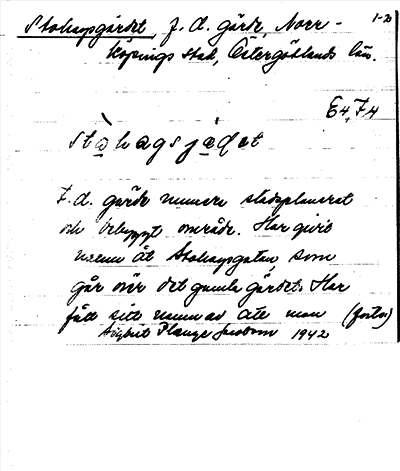 Stohagsgärdet, f.d. gärde, Norr- 1-20
köpings stad, Östergötlands län.
E4, F4
stohagsjädet
F.d. gärde numera stadsplanerat
och bebyggt område. Har givit
namn åt Stohagsgatan, som
går över det gamla gärdet. Har
fått sitt namn av att man (forts)
1942